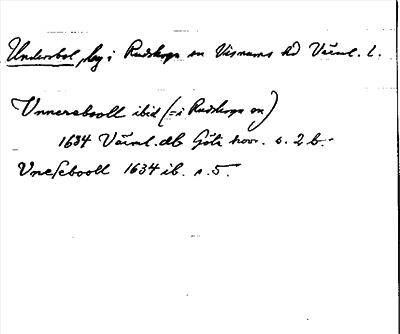 Undersbol, låg i Rudskoga sn Visnums hd Värml. l.
Vnnersbooll ibid (= i Rudskoga sn)
1634 Värml. db Göta hovr. s. 2 b.
Vneſebooll 1634 ib. s. 5.